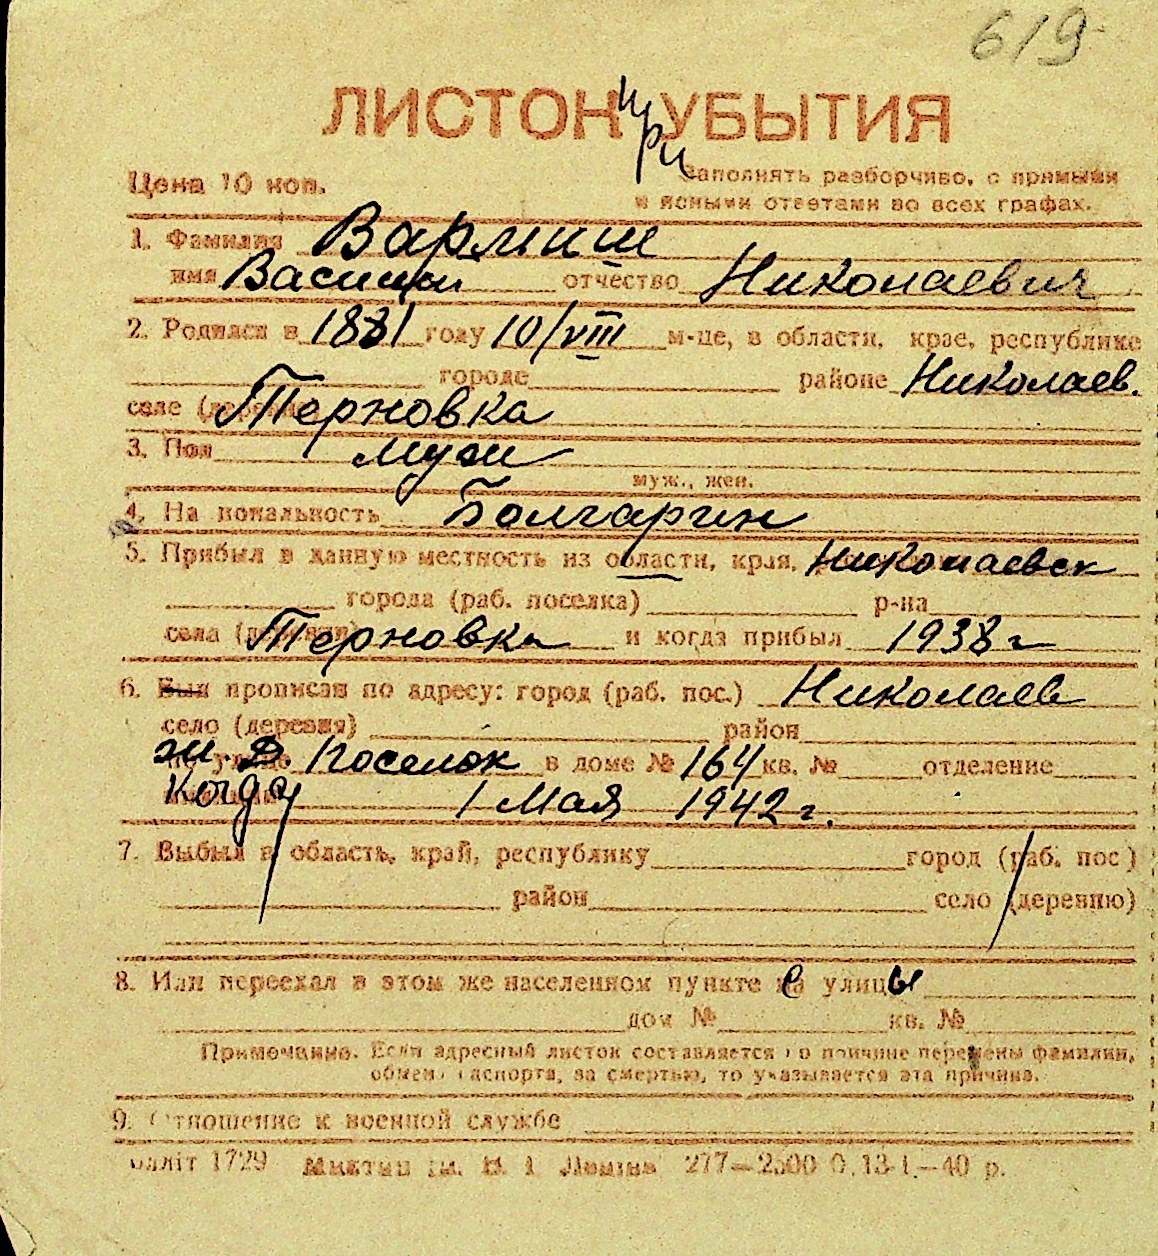 619
ЛИСТОК при УБЫТИЯ
Цена 10 коп.
Заполнять разборчиво, с прямыми
и ясными ответами во всех графах.
1. Фамилия Вармиш
имя Василий отчество Николаевич
2. Родился в 1881 году 10/VIII м-це, в области, крае, республике
городе районе Николаев.
селе (деревне) Терновка
3. Пол муж
муж., жен.
4. Национальность Болгарин
5. Прибыл в данную местность из области, края, Николаевск
города (раб. поселка) р-на
села (деревни) Терновка и когда прибыл 1938 г
6. Был прописан по адресу: город (раб. пос.) Николаев
село (деревня) район
по улице ж. д Поселок в доме № 164 кв. № отделение
Когда 1 Мая 1942 г.
7. Выбыл в область, край, республику город (раб. пос)
район село (деревню)
8. Или переехал в этом же населенном пункте с улицы
дом № кв. №
Примечание. Если адресный листок составляется по причине перемены фамилии,
обмена паспорта, за смертью, то указывается эта причина.
9. Отношение к военной службе
1729 277—2500 0.13-I.—40 р.